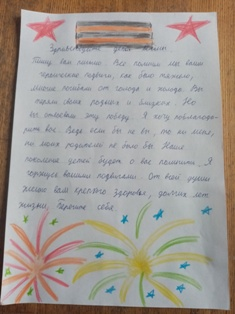 Здравствуйте деда солдат.
Пишу вам письмо. Все помнят про ваши
героические подвиги, как было тяжело,
многие погибали от голода и холода. Вы
теряли своих родных и близких. Но
вы отвоевали эту победу. Я хочу поблагода-
рить вас. Ведь если бы не вы, то ни меня,
ни моих родителей не было бы. Наше
поколение детей будет о вас помнить. Я
горжусь вашими подвигами. От всей души
желаю вам крепкого здоровья, долгих лет
жизни, берегите себя.